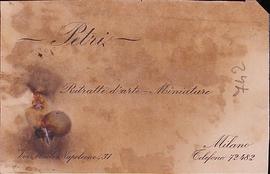 Petri
Ritratti d'arte - Miniature
742
Milano
Via Monte Napoleone, 31
Telefono 72482